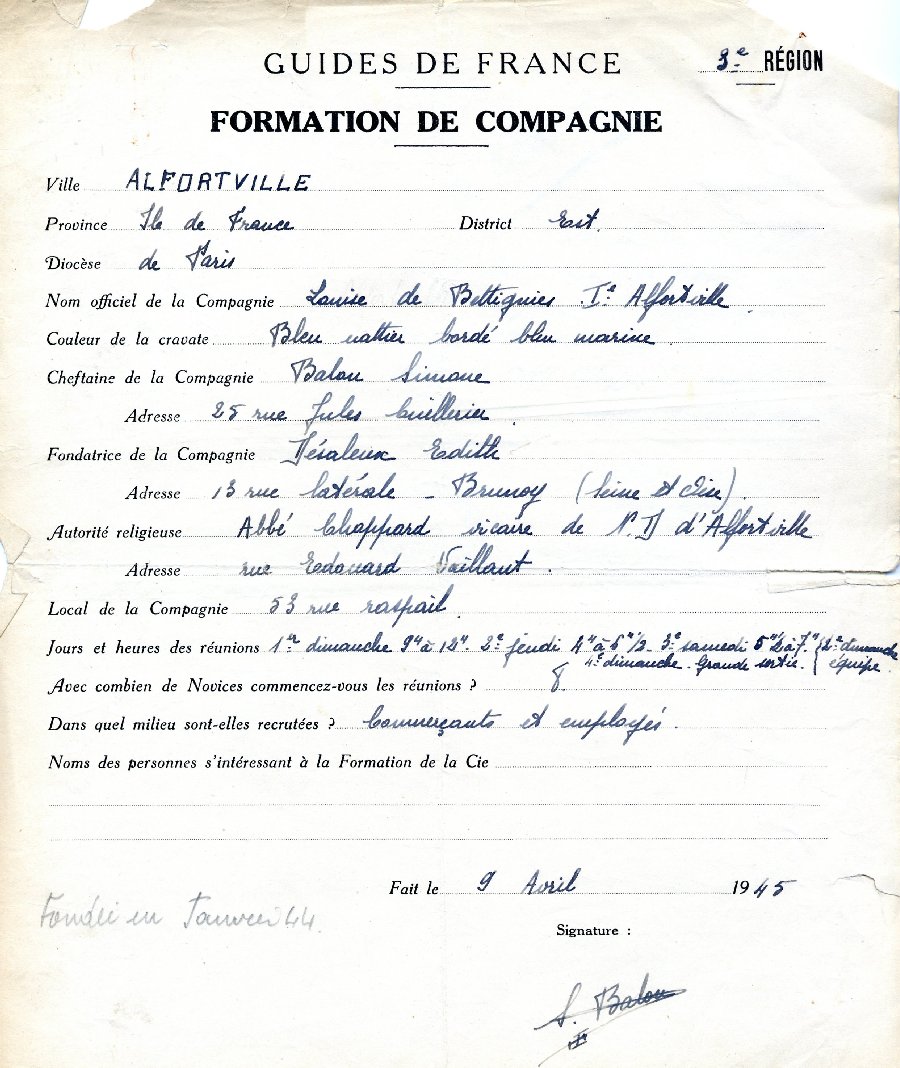 GUIDES DE FRANCE 3e RÉGION
FORMATION DE COMPAGNIE
Ville ALFORTVILLE
Province Ile de France District Est.
Diocèse de Paris
Nom officiel de la Compagnie Louise de Bettignies Ie Alfortville
Couleur de la cravate Bleu nattier bordé bleu marine
Cheftaine de la Compagnie Balou Simone
Adresse 25 rue Jules Cuillerier
Fondatrice de la Compagnie Désaleux Edith
Adresse 13 rue latérale - Brunoy (Seine et Oise).
Autorité religieuse Abbé Chappard vicaire de N.D d'Alfortville
Adresse rue Edouard Vaillant.
Local de la Compagnie 53 rue raspail
Jours et heures des réunions 1er dimanche 9h à 12h. 2e jeudi 4h à 6h 1/2. 3e samedi 5h 1/2 à 7h { 2e dimanche
4e dimanche. Grande sortie. { équipe.
Avec combien de Novices commencez-vous les réunions ? 8
Dans quel milieu sont-elles recrutées ? Commerçants et employés.
Noms des personnes s'intéressant à la Formation de la Cie
Fait le 9 Avril 1945
Fondée en Janvier 44.
Signature :
S. Balou